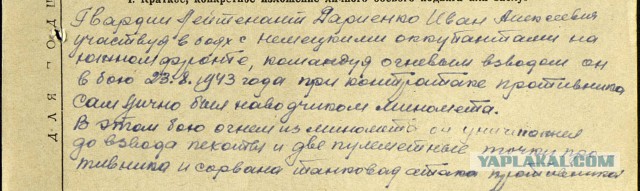 1. Краткое, конкретное изложение личного боевого подвига или заслуг
Гвардии Лейтенант Дариенко Иван Алексеевич
участвуя в боях с немецкими оккупантами на
южном фронте, командуя огневым взводом он
в бою 23.8.1943 года при контратаке противника
сам лично был наводчиком миномета.
В этом бою огнем из миномета он уничтожил
до взвода пехоты и две пулеметные точки про
тивника и сорвана танковая атака противника
ДЛЯ ПОДШ
YAPLAKAL.COM